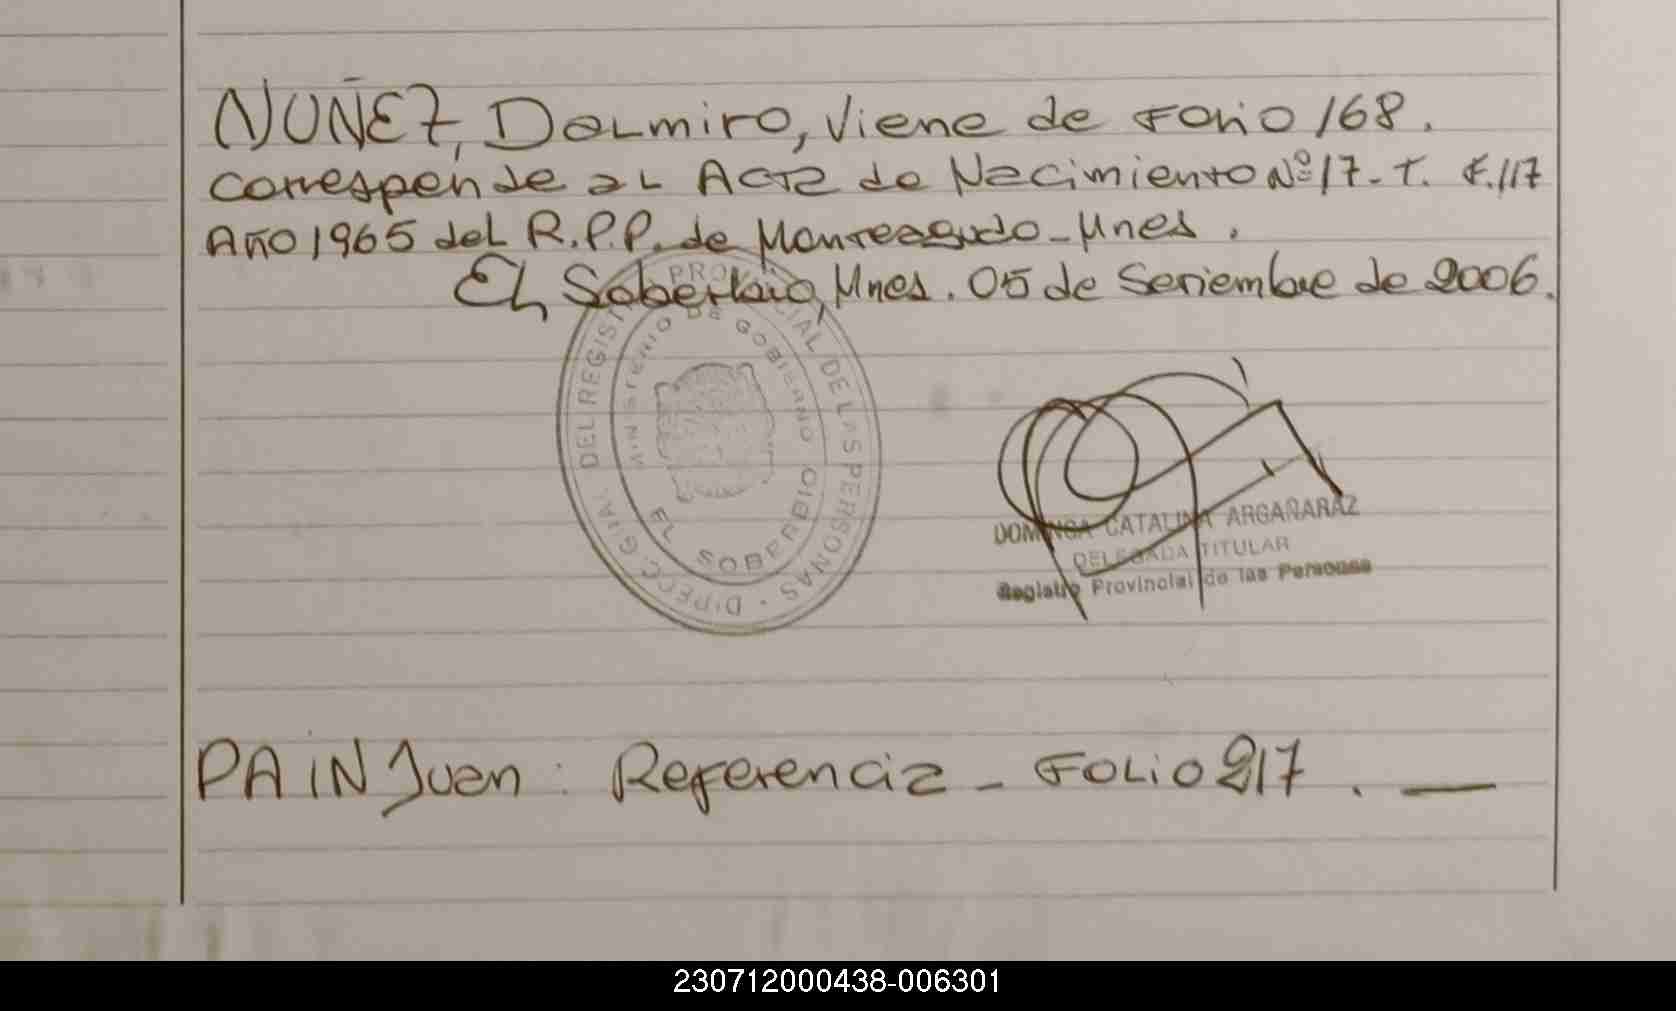 NUÑEZ, Dalmiro, Viene de Folio 168.
Corresponde al Acta de Nacimiento Nº 17 - T. F. 117
Año 1965 del R.P.P. de Monteagudo - Mnes.
El Soberbio, Mnes. 05 de Setiembre de 2006.
DIRECC. GRAL. DEL REGISTRO PROVINCIAL DE LAS PERSONAS
MINISTERIO DE GOBIERNO
EL SOBERBIO
DOMINGA CATALINA ARGAÑARAZ
DELEGADA TITULAR
Registro Provincial de las Personas
PAIN Juan: Referencia - Folio 217. —
230712000438-006301